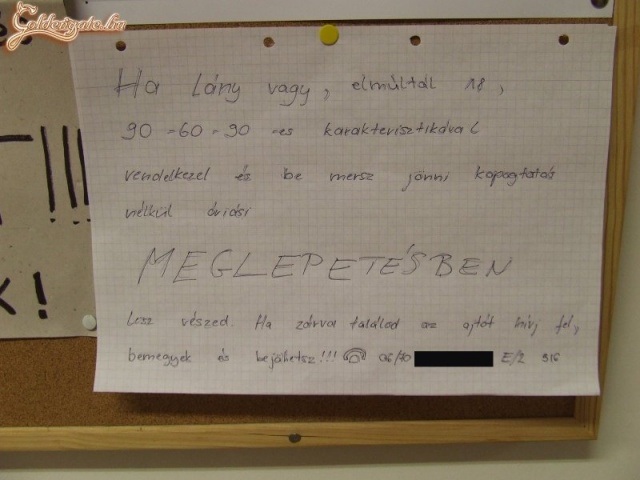 Goldengate.hu
Ha lány vagy, elmúltál 18,
90-60-90-es karakterisztikával
rendelkezel és be mersz jönni kopogtatás
nélkül óriási
MEGLEPETÉSBEN
lesz részed. Ha zárva találod az ajtót hívj fel,
bemegyek és bejöhetsz!!! 06/70 E/2 916
!!!
K!